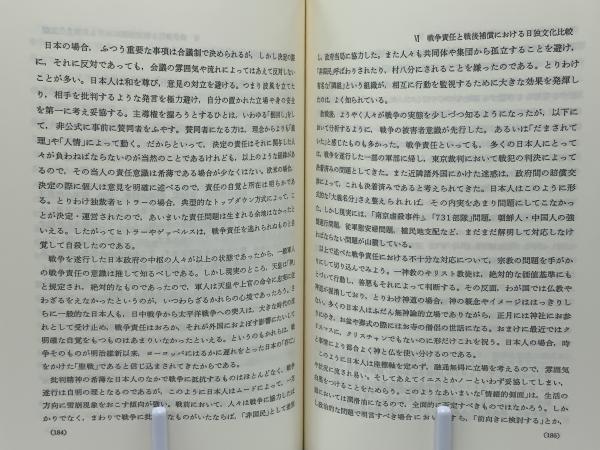 日本の場合、ふつう重要な事項は会議制で決められるが、しかし決定の際
に、それに反対であっても、会議の雰囲気や流れによってはあえて反対しない
ことが多い。日本人は和を尊び、意見の対立を避ける。つまり波風を立てた
り、相手を批判するような発言を極力避け、自分の置かれた立場や身の安全
を第一に考え妥協する。主導権を握ろうとするひとは、いわゆる「根回し」をし
て、非公式に事前に賛同をふやす。賛同者になる方は、理念からよりも「義
理」や「人情」によって動く。だからといって、決定の責任はそれに関与した人
々が負わねばならないのが当然のことであるけれども、以上のような経緯があ
るので、その当人の責任意識は希薄である場合が少なくはない。欧米の場合、
決定の際に個人は意見を明確に述べるので、責任の自覚と所在は明らかであ
る。とりわけ独裁者ヒトラーの場合、典型的なトップダウン方式によって、こ
とが決定・運営されたので、あいまいな責任問題は生まれる余地はなかったと
いえる。したがってヒトラーやゲッベルスは、戦争責任を逃れられぬものと自
覚して自殺したのである。
戦争を遂行した日本政府の中枢の人々が以上の状態であったから、一般軍人
の戦争責任の意識は推して知るべしである。しかし現実のところ、天皇は「神」
と規定され、絶対的なものであったので、軍人は天皇や上官の命令に忠実に従
わざるをえなかったというのが、いつわらざるかれらの心境であったろう。さ
らに一般的な日本人も、日中戦争から太平洋戦争への突入は、大きな時代の流
れとして受け止め、戦争責任はおろか、それが外国におよぼす影響にたいして
明確な自覚をもつものはあまりいなかったといえる。というのもかれらは、戦
争そのものが明治維新以来、ヨーロッパにはるかに遅れをとった日本の「存亡」
をかけた「聖戦」であると信じ込まされてきたからである。
批判精神の希薄な日本人のなかで戦争に抵抗するものはほとんどなく、戦争
遂行は自明の理となるのであるが、このように日本人はムードによって、一定
方向に雪崩現象をおこす傾向が強い。戦前において、人々は戦争に協力したば
かりでなく、まわりで戦争に批判的なものがいたならば、「非国民」として迫害
(184)
Ⅵ 戦争責任と戦後補償における日独文化比較
し、政府当局に協力した。また人々も共同体や集団から孤立することを避け、
「非国民」呼ばわりされたり、村八分にされることを嫌ったのである。とりわけ
有名な「隣組」という組織が、相互に行動を監視するために大きな効果を発揮し
たのは、よく知られている。
敗戦後、ようやく人々が戦争の実態を少しづつ知るようになったが、以下に
おいて分析するように、戦争の被害者意識が先行した。あるいは「だまされて
いた」と感じたものも多かった。戦争責任といっても、多くの日本人にとって
は、戦争を遂行した一部の軍部に帰し、東京裁判において戦犯の判決によって
決着済みの問題としてきた。また近隣諸外国にかけた迷惑は、政府間の賠償交
渉によって、これも決着済みであると考えられてきた。日本人はこのように形
式的な「大義名分」さえ整えられれば、その内実をあまり問題にしてこなかっ
た。しかし現実には、「南京虐殺事件」、「731部隊」問題、朝鮮人・中国人の強
制連行問題、従軍慰安婦問題、植民地支配など、まだまだ解明して対応しなけ
ればならない問題が山積している。
以上で述べた戦争責任における不十分な対応について、宗教の問題を手がか
りにして切り込んでみよう。一神教のキリスト教徒は、絶対的な価値基準にも
とづいて行動し、善悪もそれによって判断する。その反面、わが国では仏教や
神道が混淆しており、とりわけ神道の場合、神の概念やイメージははっきりし
ない。多くの日本人はふだん無神論的な立場でありながら、正月には神社にお参
りにゆき、お盆や葬式の際にはお寺の僧侶の世話になる。おまけに最近ではク
リスマスに、クリスチャンでもないのに形だけこれを祝う。日本人の場合、時
と事情により都合よく神と仏を使い分けるのである。
このように日本人は座標軸を定めず、融通無碍に立場を考えるので、雰囲気
や状況に流され易い。そしてあえてイエスとかノーといわず妥協してしまい、
白黒をつけることをためらう。このようなあいまいな「情緒的側面」は、生活の
面においては潤滑油になるので、全面的に否定すべきものではなかろう。しか
し政治的な問題で明言すべき場合において も、「前向きに検討する」とか、
(185)